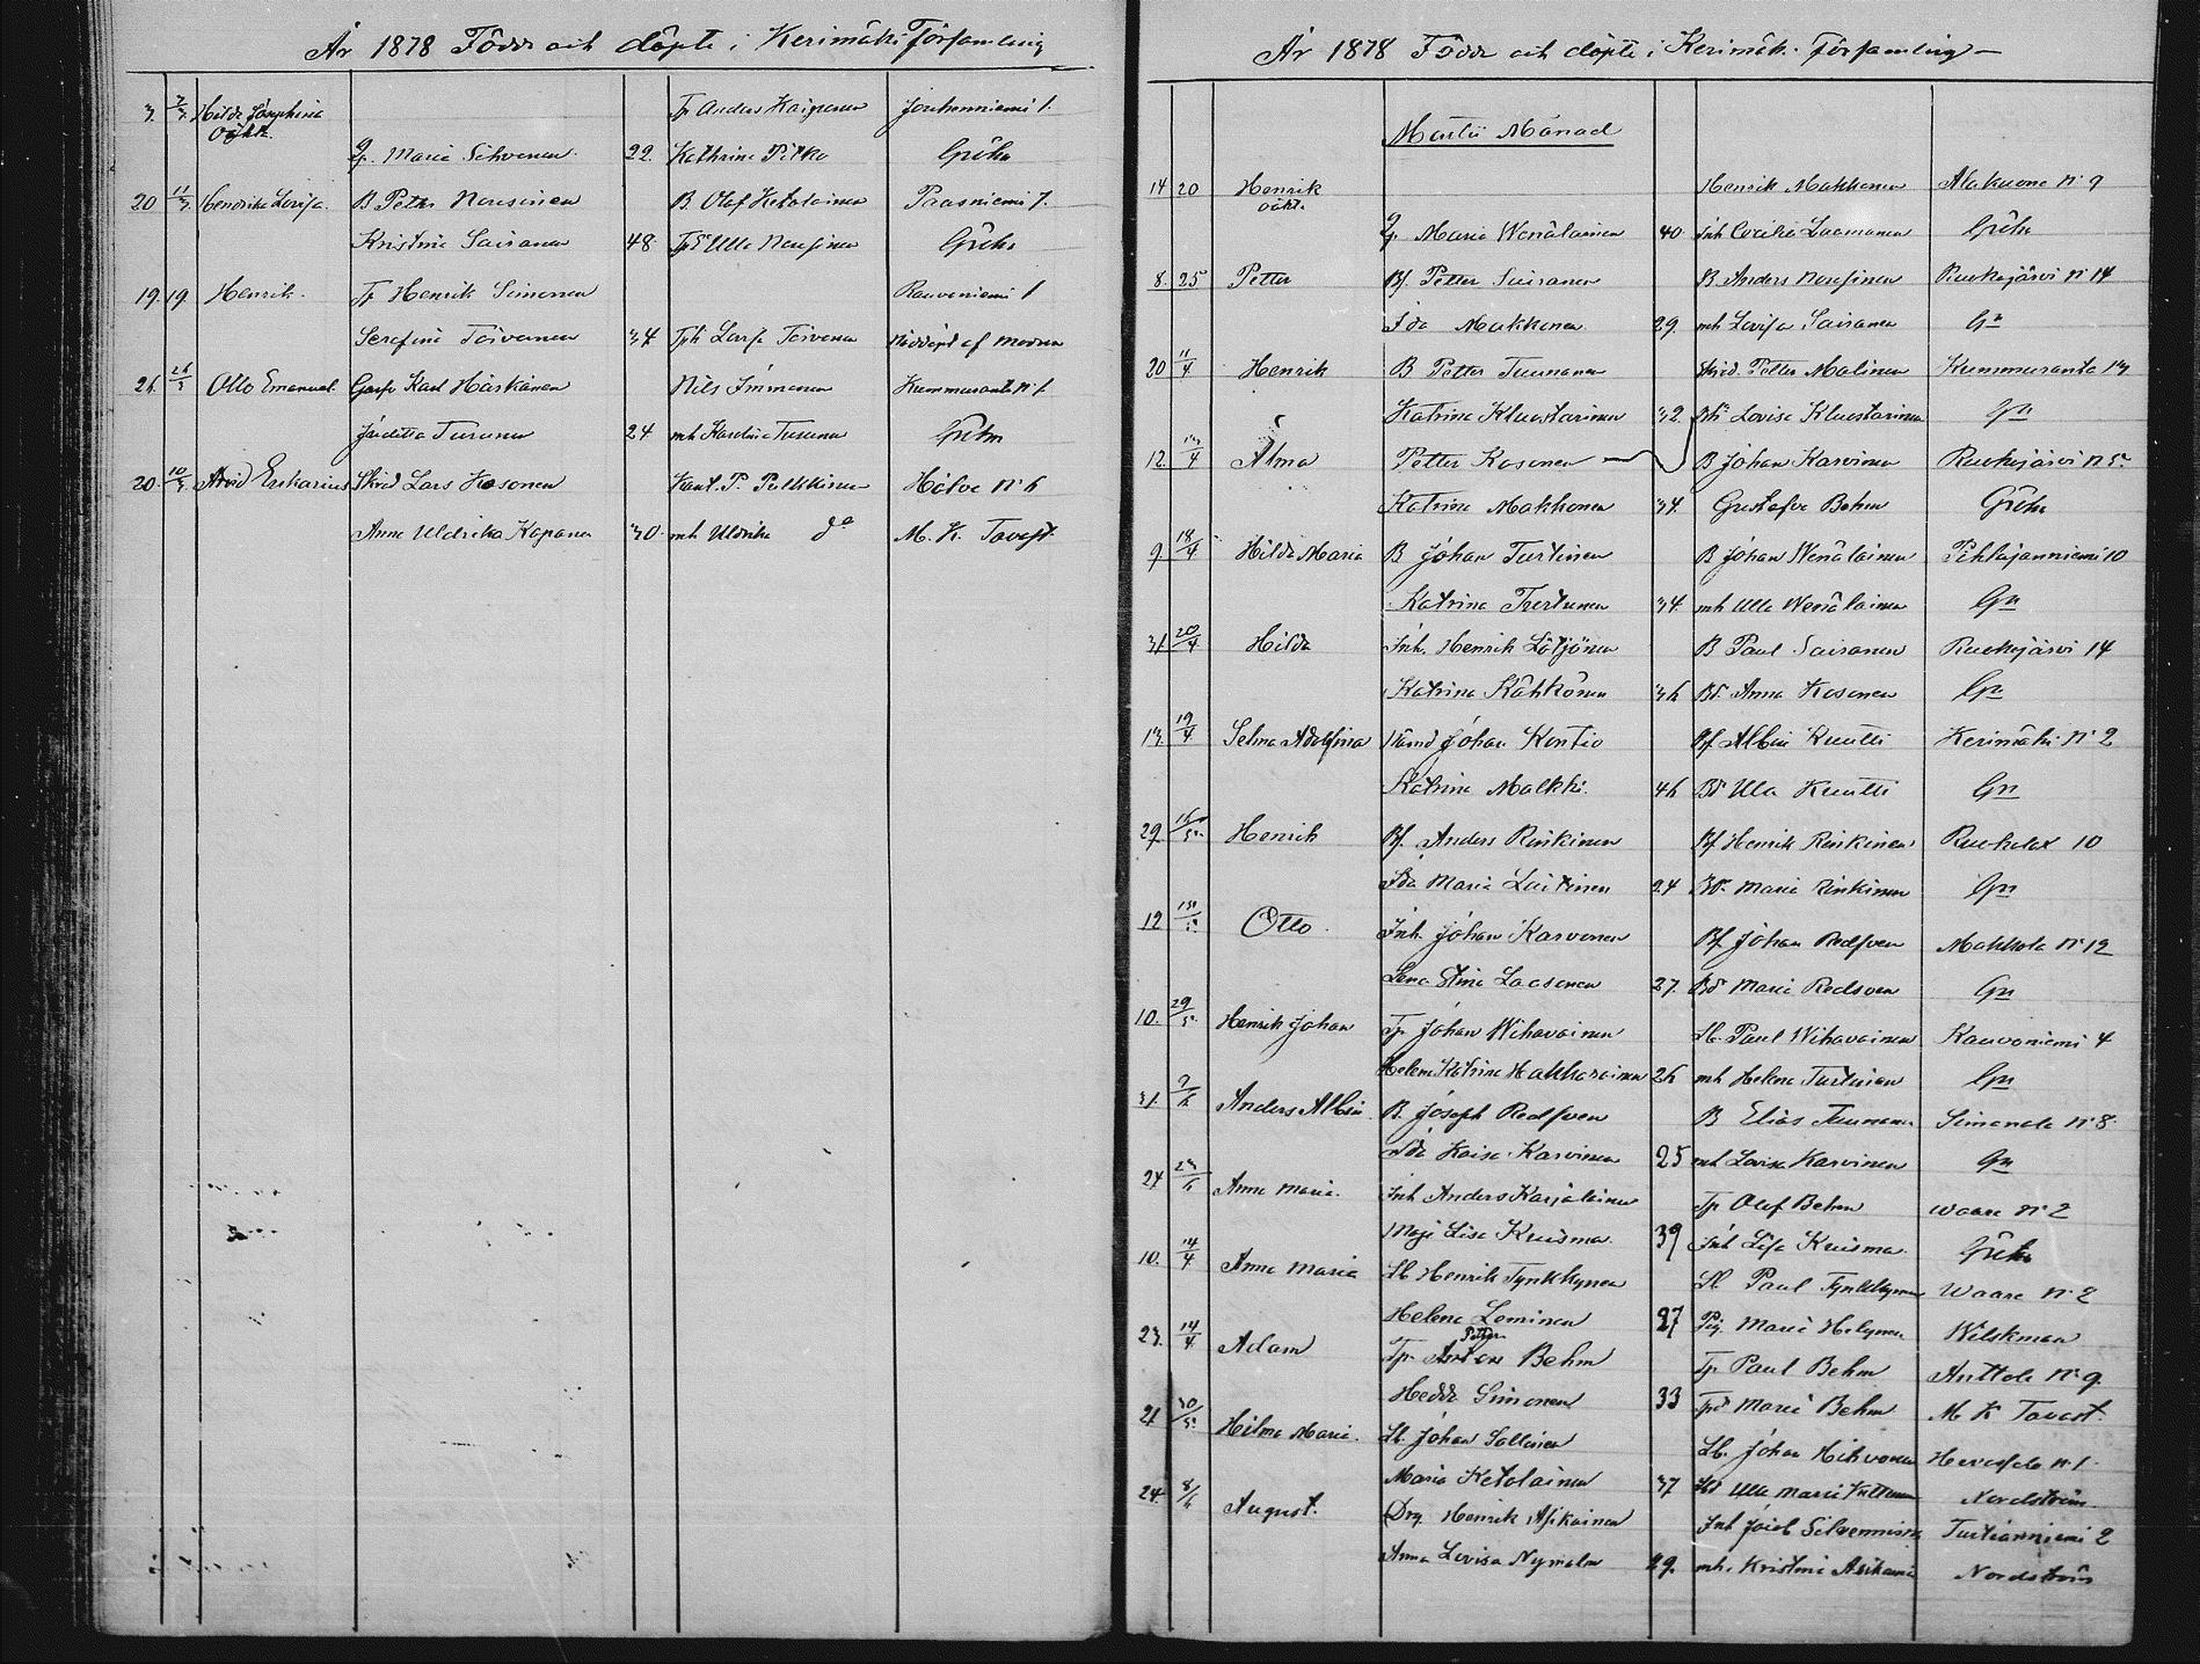 År 1878 Födde och döpte i Kerimäki Församling
3. 7/3. Hilda Josephina Tp Anders Kaipanen Jouhenniemi 1.
oäkta.
Q. Maria Sihvonen 22. Kathrina Pitko Gröhn
20 11/3. Hendrika Lovisa. B Petter Nousinen B. Olof Ketolainen Paasniemi 7.
Kristina Sairanen 48. Ulla Nousinen Gröhn
19. 19. Henrik. Tp Henrik Simonen Rauvoniemi 1
Serafina Toivonen 34 Lovisa Toivonen Nöddöpt af modren
26. 26/3 Otto Emanuel. Karl Häskänen Nils Immonen Kummuranta N:1.
Juditta Turunen 24 mh Karolina Turunen Gröhn
20. 10/3. Arvid Enkarius Skrad Lars Kosonen Kant. P. Pulkkinen Hälvä N:6
Anna Uldrika Kapanen 30. mh Uldrika do M. K. Tavast.
År 1878 Födde och döpte i Kerimäki Församling
Martii Månad
14 20 Henrik Henrik Makkonen Alakuona N:9
oäkta
Q. Maria Wenäläinen 40 Inh Cecilia Laamanen Gröhn
8. 25 Petter Bf. Petter Sairanen B Anders Nousinen Ruokojärvi N:14
Ida Makkonen 29. mh Lovisa Sairanen Gn
20 11/4 Henrik B Petter Tuunanen Skrad. Petter Malinen Kummuranta
Katrina Kluustarinen 32. Lovisa Kluustarinen Gn
12. 13/4 Alma Petter Kosonen B Johan Karvinen Ruokojärvi N:5.
Katrina Makkonen 34. Gustafva Behm Gröhn
9 18/4 Hilda Maria B Johan Turtinen B Johan Wenäläinen Pihlajanniemi 10
Katrina Turtinen 34. mh Ulla Wenäläinen Gn
31 20/4 Hilda Inh. Henrik Lötjönen B Paul Sairanen Ruokojärvi 14
Katrina Kähkönen 36 Bd. Anna Kosonen Gn
13. 19/4 Selma Adolfina Nämd Johan Kontio Bf Albin Kuutti Kerimäki N:2
Katrina Malkki. 46 Bd Ulla Kuutti Gn
29. 16/5. Henrik Bf. Anders Rinkinen Bf Henrik Rinkinen Ruokolax 10
Ida Maria Laitinen 24 Bd. Maria Rinkinen Gn
12 Otto. Inh. Johan Karvonen Bf Johan Redsven Makkola N:12
Lena Stina Laasonen 27. Bd Maria Redsven Gn
10. 29/5. Henrik Johan Tp Johan Wihavainen Lb. Paul Wihavainen Rauvoniemi 4
Helena Katrina Hakkarainen 26 mh Helena Turtiainen Gn
31 9/6 Anders Albin B. Joseph Redsven B Elias Tuunanen Simanala N:8.
Ida Kaisa Karvinen 25 mh Lovisa Karvinen Gn
24 23/6 Anna Maria. Inh Anders Karjalainen Tp Olof Behm Waara N:2
Maja Lisa Kruisma. 39 Inh Lisa Kruisma. Gröhn
10. 14/4 Anna Maria Lb Henrik Tynkkynen Lb Paul Tynkkynen Waara N:2
Helena Leminen 27 Pig. Maria Helynen Wilskman
23. 14/4. Adam Tp. Anton Petter Behm Tp Paul Behm Anttola N:9.
Hedda Simonen 33 Tpd Maria Behm M K Tavast.
21 30/5. Hilma Maria. Lb. Johan Sallinen Lb. Johan Hihvonen N:1.
Maria Ketolainen 37 Ulla Maria Nordström.
24. 8/6 August. Drg. Henrik Asikainen Inh Silvennoinen Turtianniemi 2
Anna Lovisa Nymalm 29. mh. Kristina Asikainen Nordström